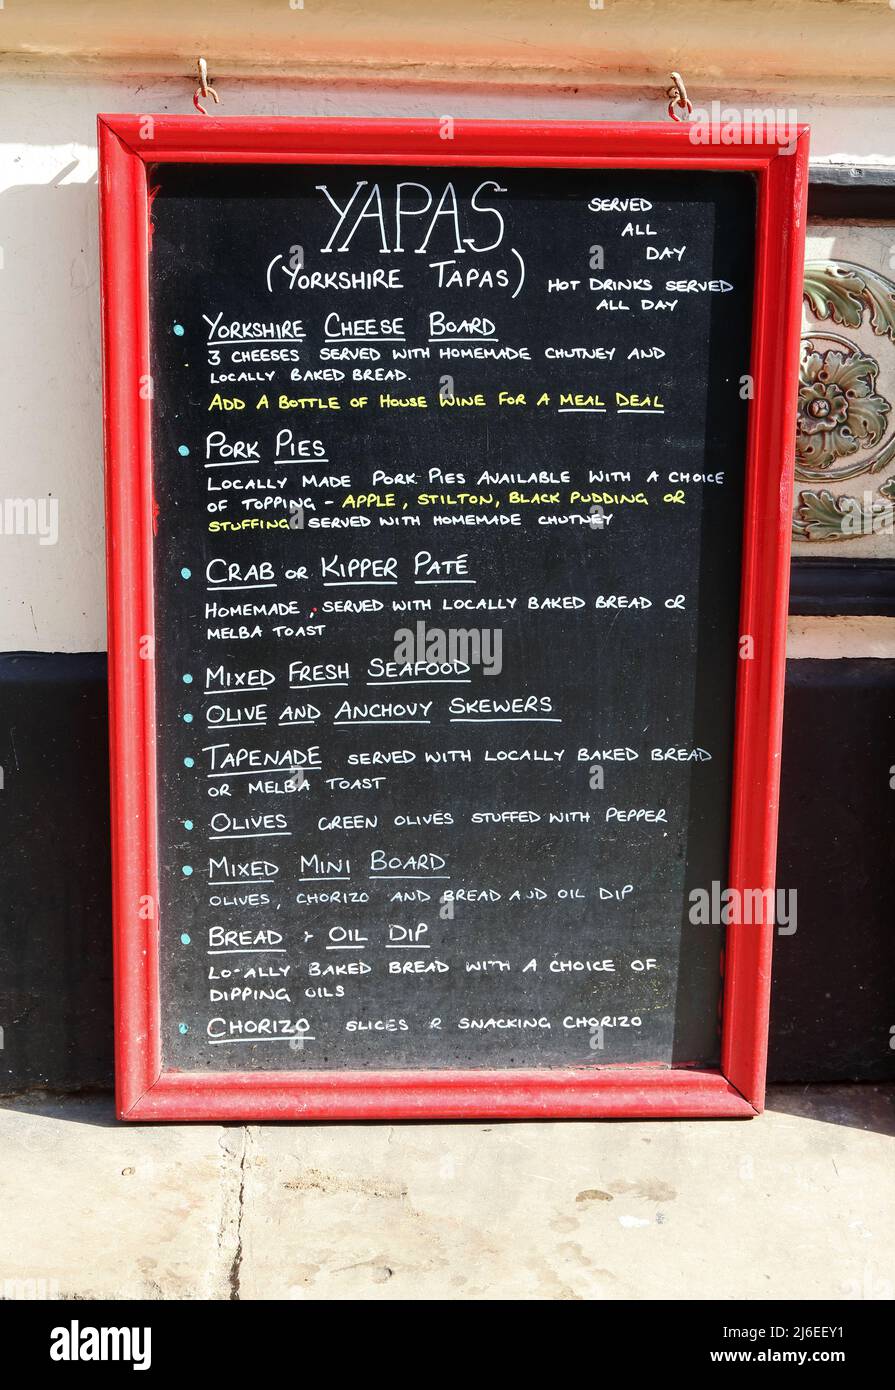 YAPAS
(YORKSHIRE TAPAS)
SERVED
ALL
DAY
HOT DRINKS SERVED
ALL DAY
• YORKSHIRE CHEESE BOARD
3 CHEESES SERVED WITH HOMEMADE CHUTNEY AND
LOCALLY BAKED BREAD.
ADD A BOTTLE OF HOUSE WINE FOR A MEAL DEAL
• PORK PIES
LOCALLY MADE PORK PIES AVAILABLE WITH A CHOICE
OF TOPPING - APPLE, STILTON, BLACK PUDDING OR
STUFFING SERVED WITH HOMEMADE CHUTNEY
• CRAB OR KIPPER PATÉ
HOMEMADE, SERVED WITH LOCALLY BAKED BREAD OR
MELBA TOAST
• MIXED FRESH SEAFOOD
• OLIVE AND ANCHOVY SKEWERS
• TAPENADE SERVED WITH LOCALLY BAKED BREAD
OR MELBA TOAST
• OLIVES GREEN OLIVES STUFFED WITH PEPPER
• MIXED MINI BOARD
OLIVES, CHORIZO AND BREAD AND OIL DIP
• BREAD + OIL DIP
LOCALLY BAKED BREAD WITH A CHOICE OF
DIPPING OILS
• CHORIZO SLICES & SNACKING CHORIZO
alamy
Image ID: 2J6EEY1
www.alamy.com